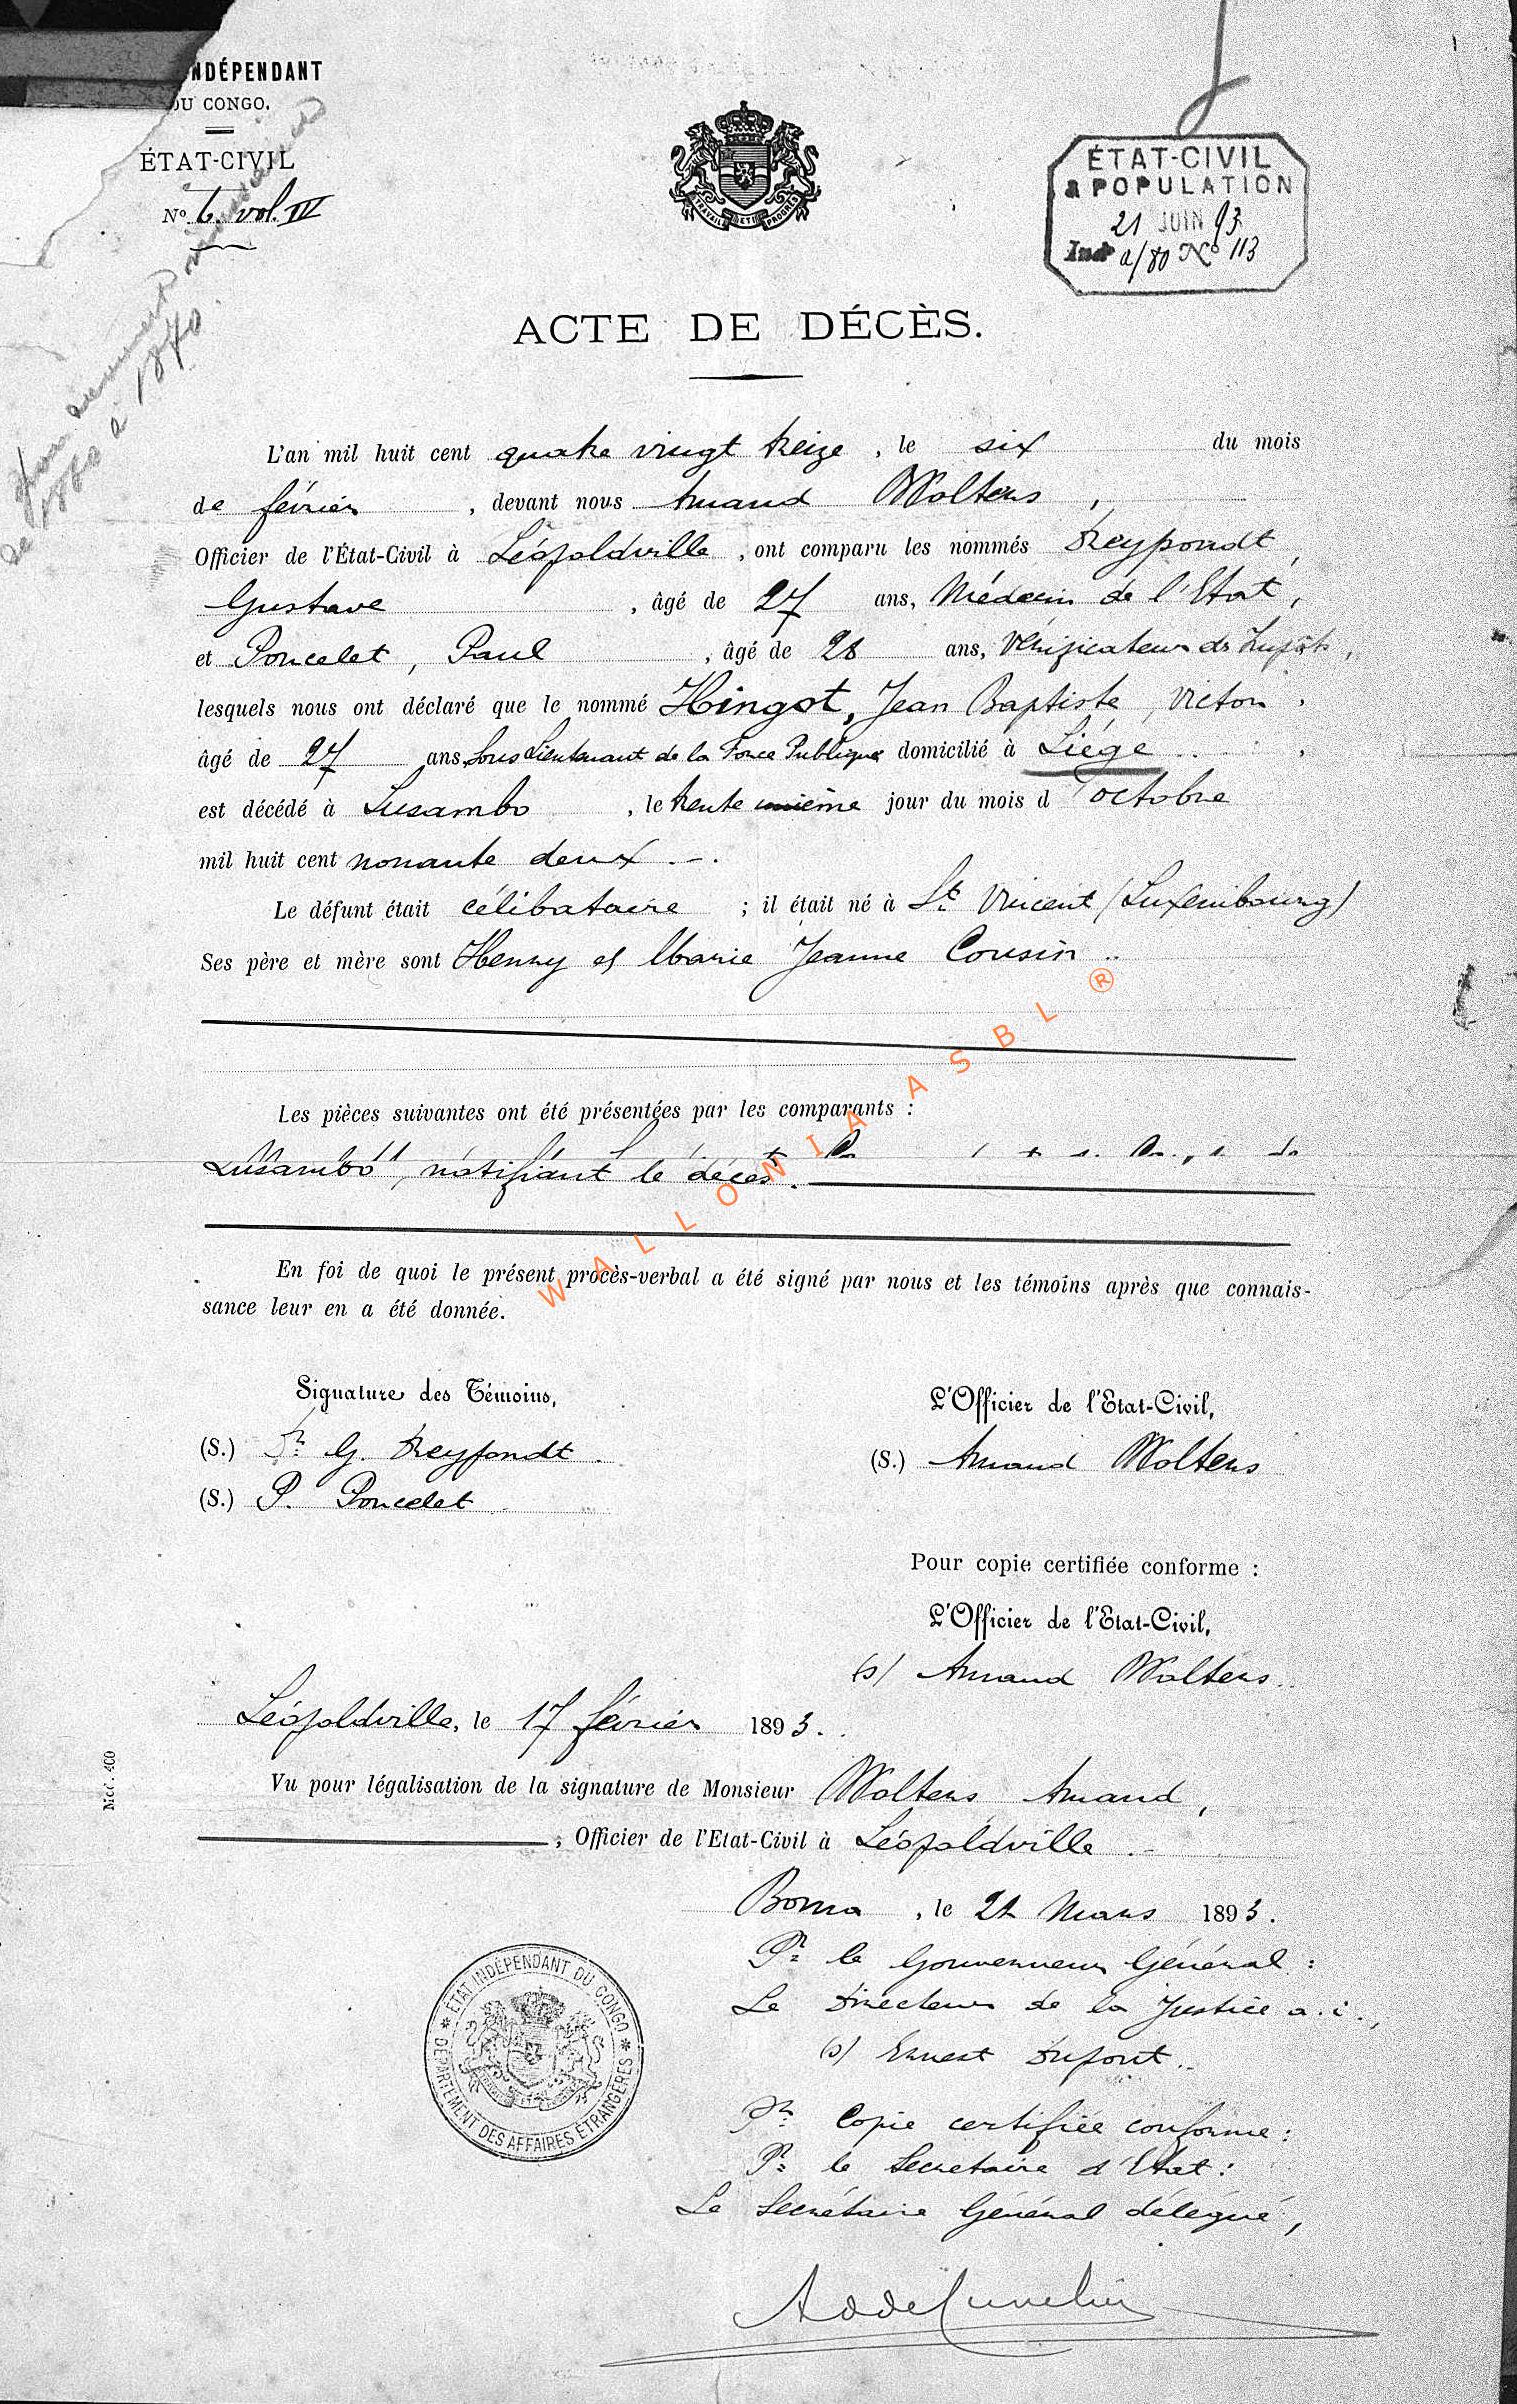 INDÉPENDANT
DU CONGO.
ÉTAT-CIVIL
No 6. vol. IV
TRAVAIL ET PROGRÈS
ÉTAT-CIVIL
& POPULATION
21 JUIN 93
Ind a/80 No 113
ACTE DE DÉCÈS.
L'an mil huit cent quatre vingt treize, le six du mois
de février, devant nous Amand Wolters,
Officier de l'État-Civil à Léopoldville, ont comparu les nommés Reypondt,
Gustave, âgé de 27 ans, Médecin de l'Etat,
et Poncelet, Paul, âgé de 28 ans, Vérificateur des Impôts,
lesquels nous ont déclaré que le nommé Hingot, Jean Baptiste, Victor,
âgé de 27 ans, Sous Lieutenant de la Force Publique domicilié à Liége,
est décédé à Lusambo, le trente unième jour du mois d'octobre
mil huit cent nonante deux.-.
Le défunt était célibataire ; il était né à St Vincent (Luxembourg)
Ses père et mère sont Henry et Marie Jeanne Cousin..
Les pièces suivantes ont été présentées par les comparants :
Lusambo", notifiant le décès.
En foi de quoi le présent procès-verbal a été signé par nous et les témoins après que connais-
sance leur en a été donnée.
WALLONIA ASBL ®
Signature des Témoins,
(S.) Dr G. Reypondt.
(S.) P. Poncelet
L'Officier de l'Etat-Civil,
(S.) Amand Wolters
Pour copie certifiée conforme :
L'Officier de l'Etat-Civil,
(s) Amand Wolters..
Léopoldville, le 17 février 1893.
Vu pour légalisation de la signature de Monsieur Wolters Amand,
, Officier de l'Etat-Civil à Léopoldville.-
Boma, le 21 Mars 1893.
Pr le Gouverneur Général :
Le Directeur de la Justice a.i.,
(s) Ernest Dupont..
Pr Copie certifiée conforme :
Pr le Secretaire d'Etat :
Le Secrétaire Général délégué,
ÉTAT INDÉPENDANT DU CONGO
DÉPARTEMENT DES AFFAIRES ÉTRANGÈRES
Mod. 400